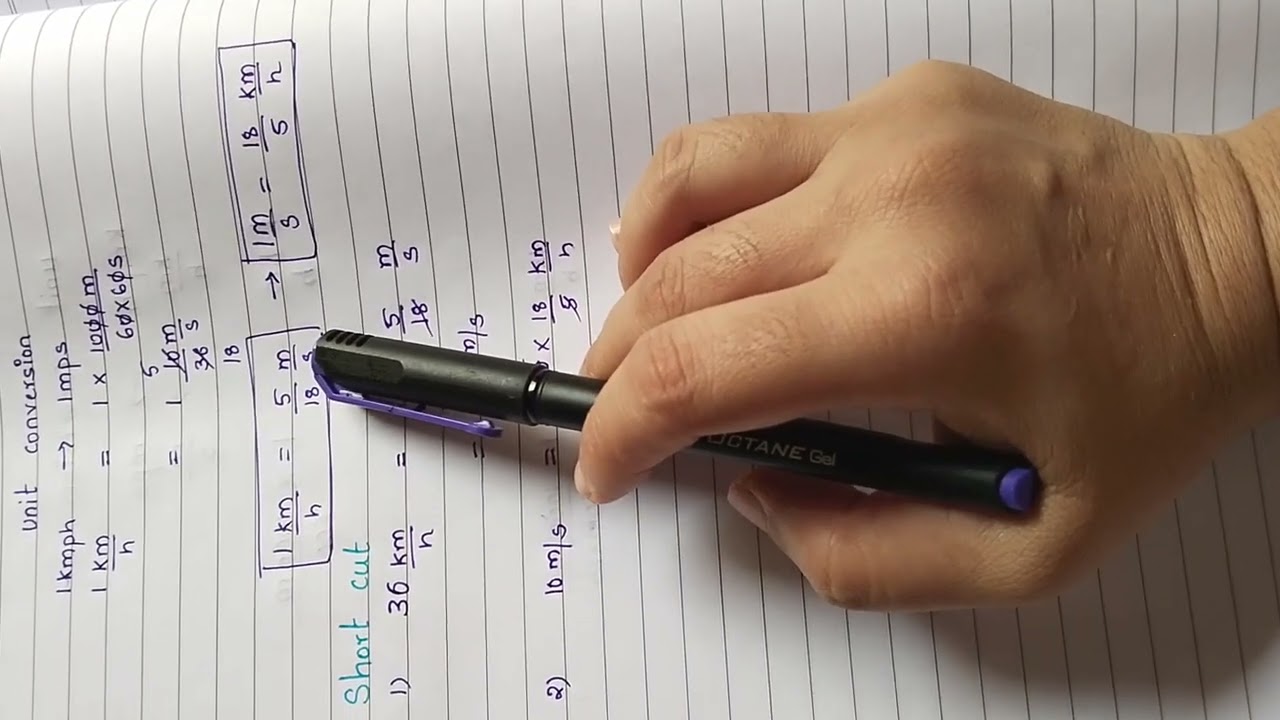 Unit conversion
1 kmph → 1mps
1 km/h = 1 × 1000 m / 60×60s
= 1 5 10 m / 36 s
18
1 km/h = 5/18 m/s → 1m/s = 18/5 km/h
Short cut
1) 36 km/h = 5/18 m/s
= m/s
2) 10 m/s = × 18/5 km/h
OCTANE Gel